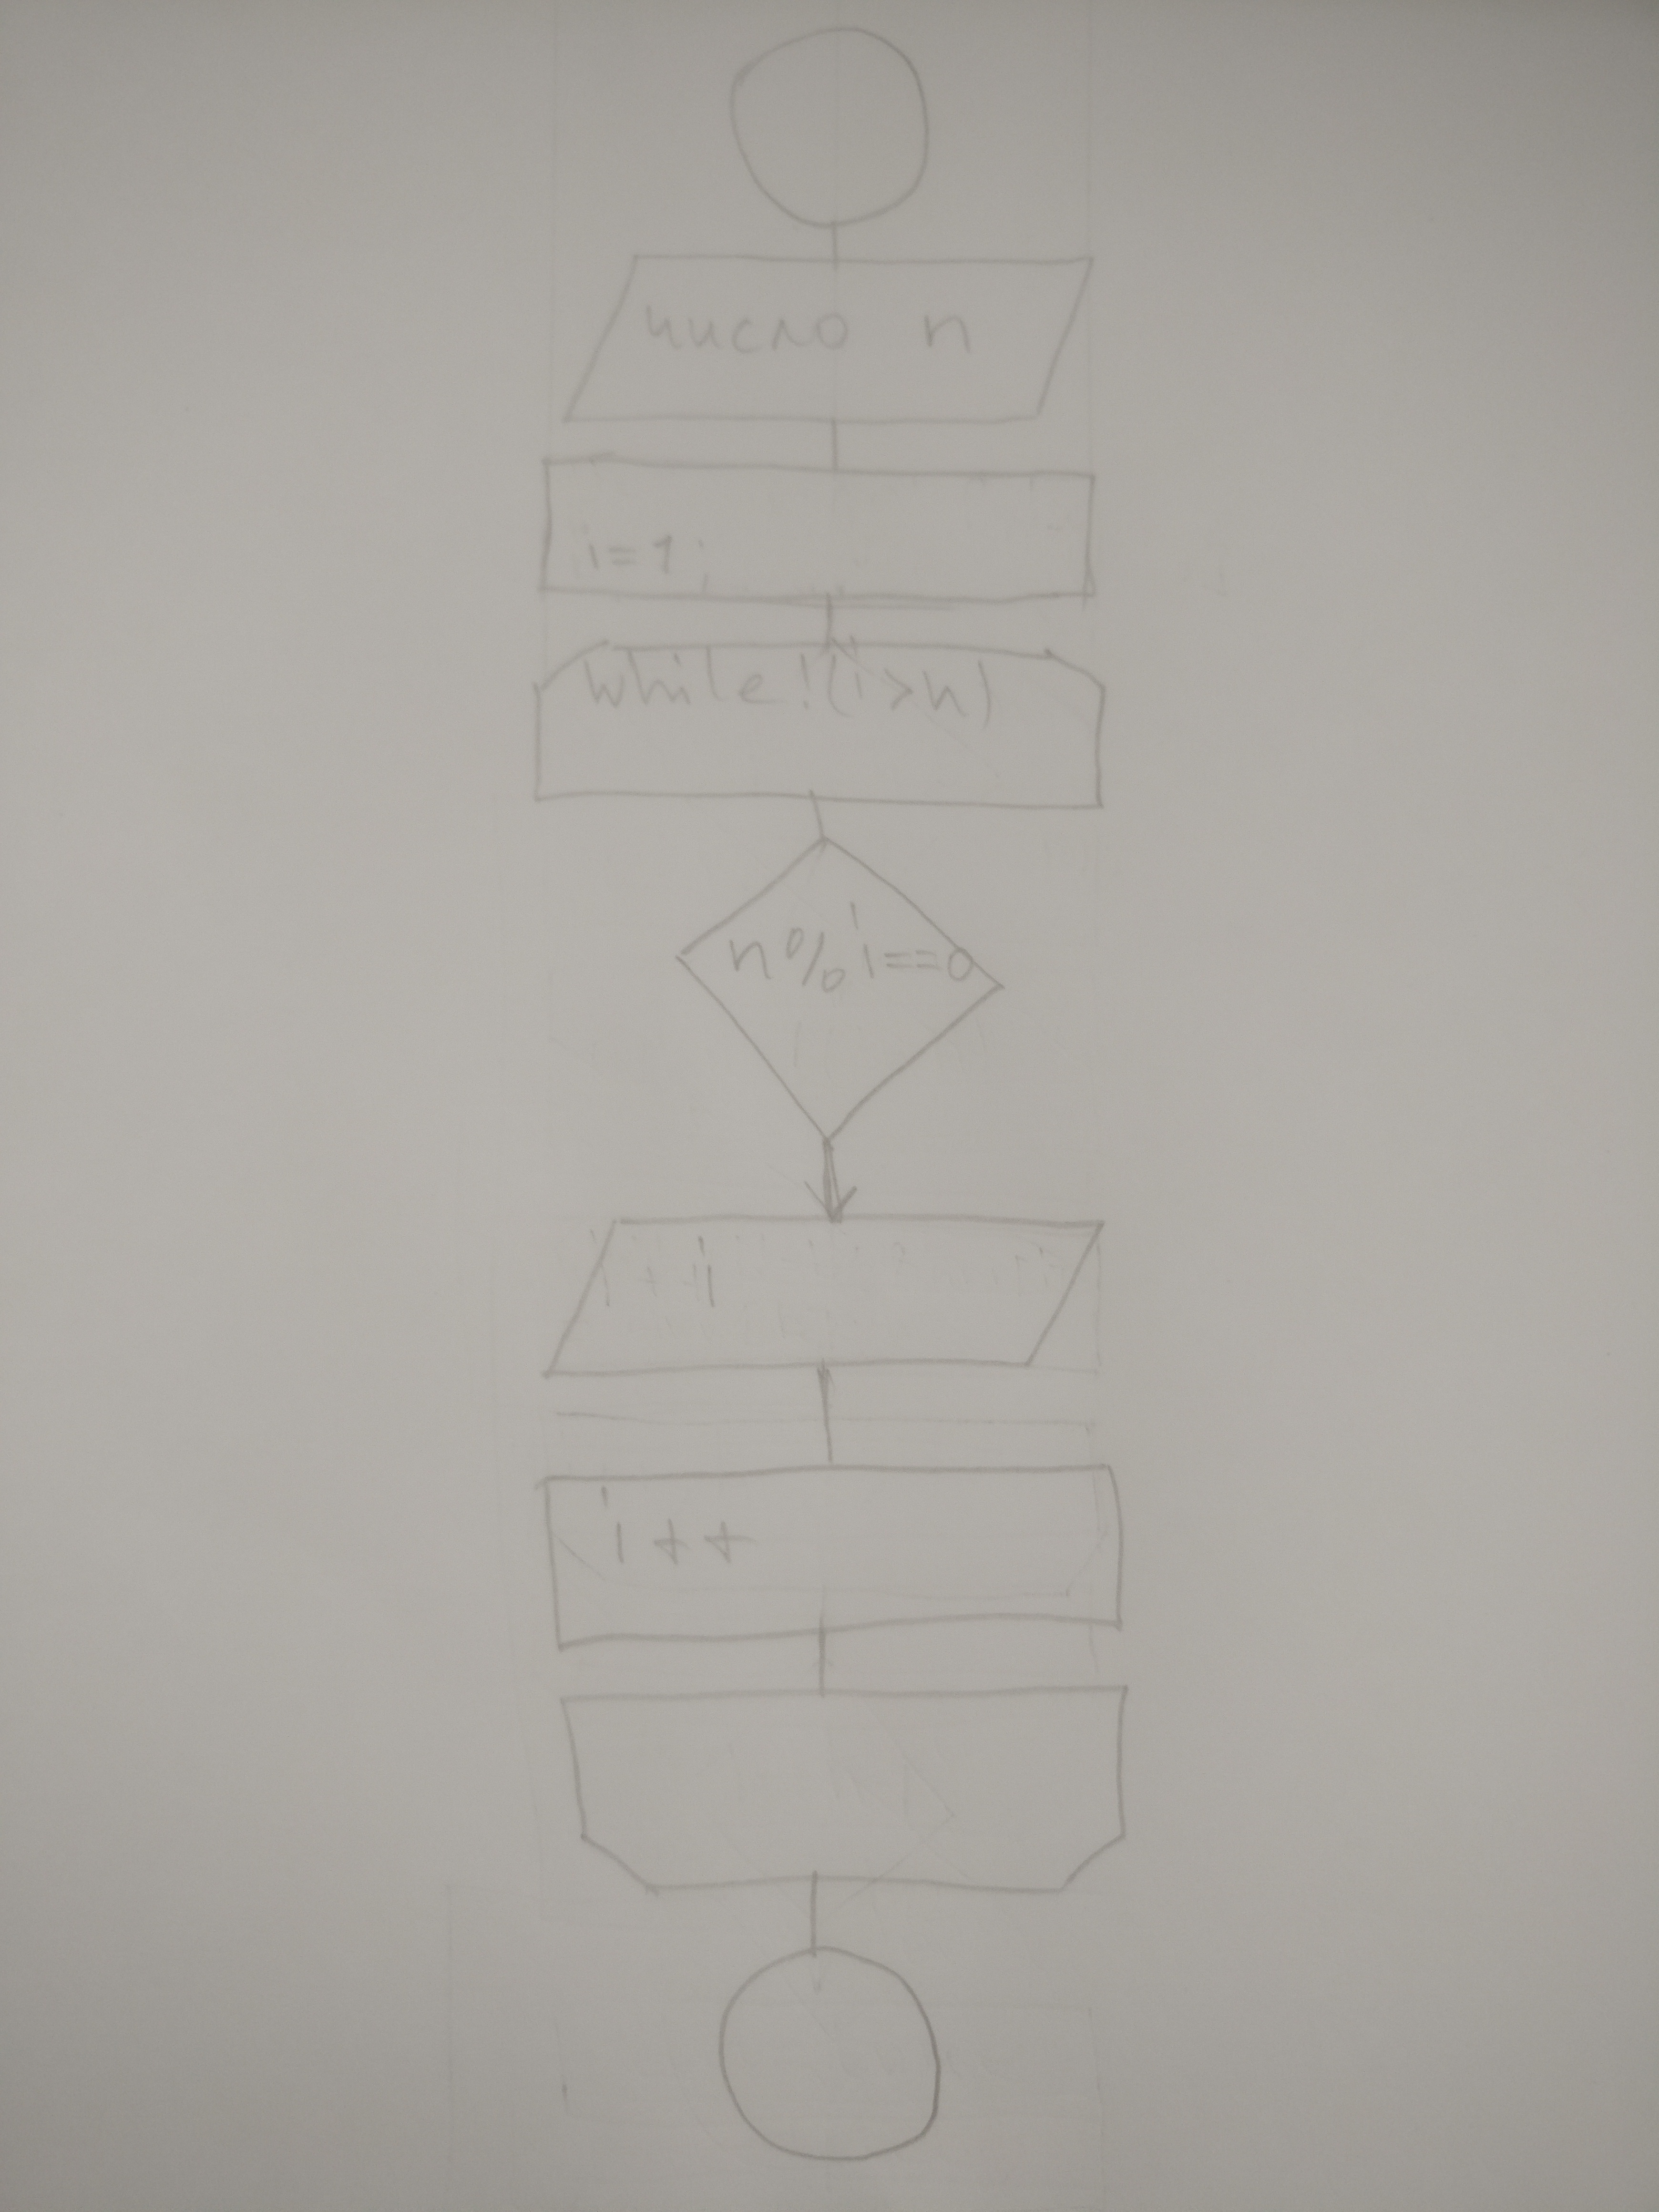 число n
i=1;
while!(i>n)
n%i==0
i
i++